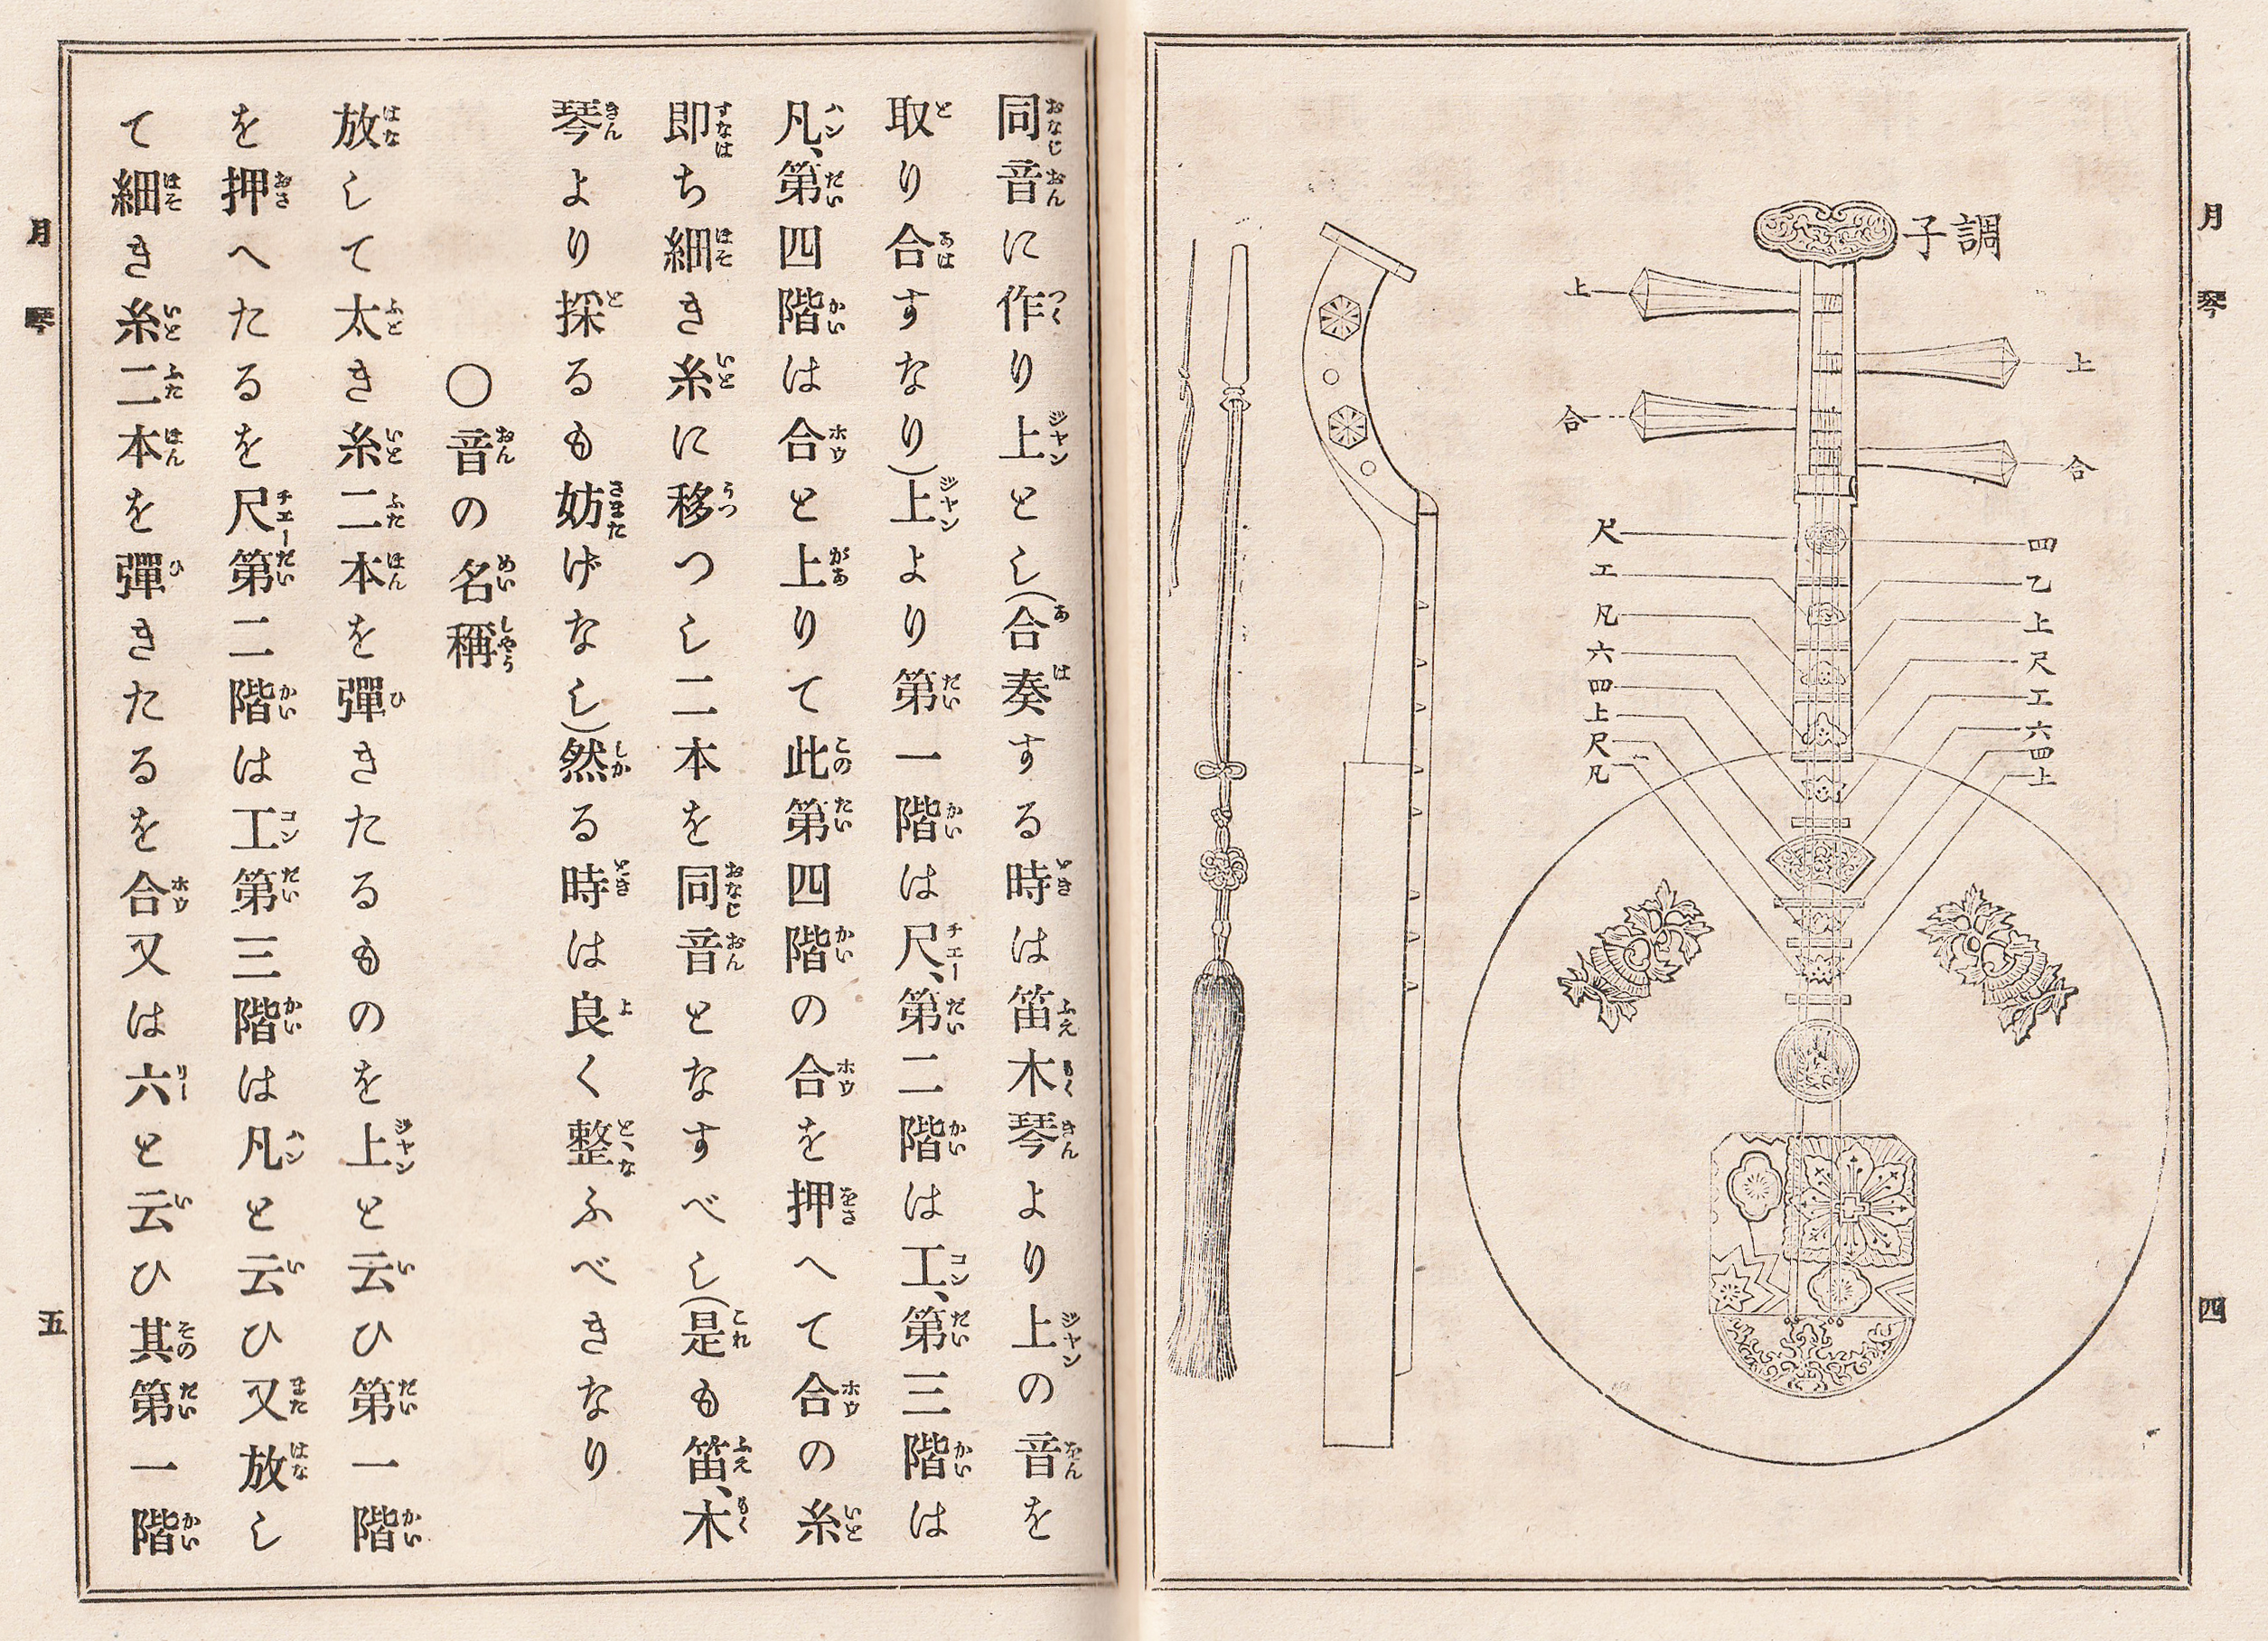 月琴
四
調子
上
上
合
合
尺
工
凡
六
四
上
尺
凡
四
乙
上
尺
工
六
四
上
同音に作り上とし(合奏する時は笛木琴より上の音を
取り合すなり)上より第一階は尺、第二階は工、第三階は
凡、第四階は合と上りて此第四階の合を押へて合の糸
即ち細き糸に移つし二本を同音となすべし(是も笛、木
琴より採るも妨げなし)然る時は良く整ふべきなり
○音の名稱
放して太き糸二本を彈きたるものを上と云ひ第一階
を押へたるを尺第二階は工第三階は凡と云ひ又放し
て細き糸二本を彈きたるを合又は六と云ひ其第一階
月琴
五